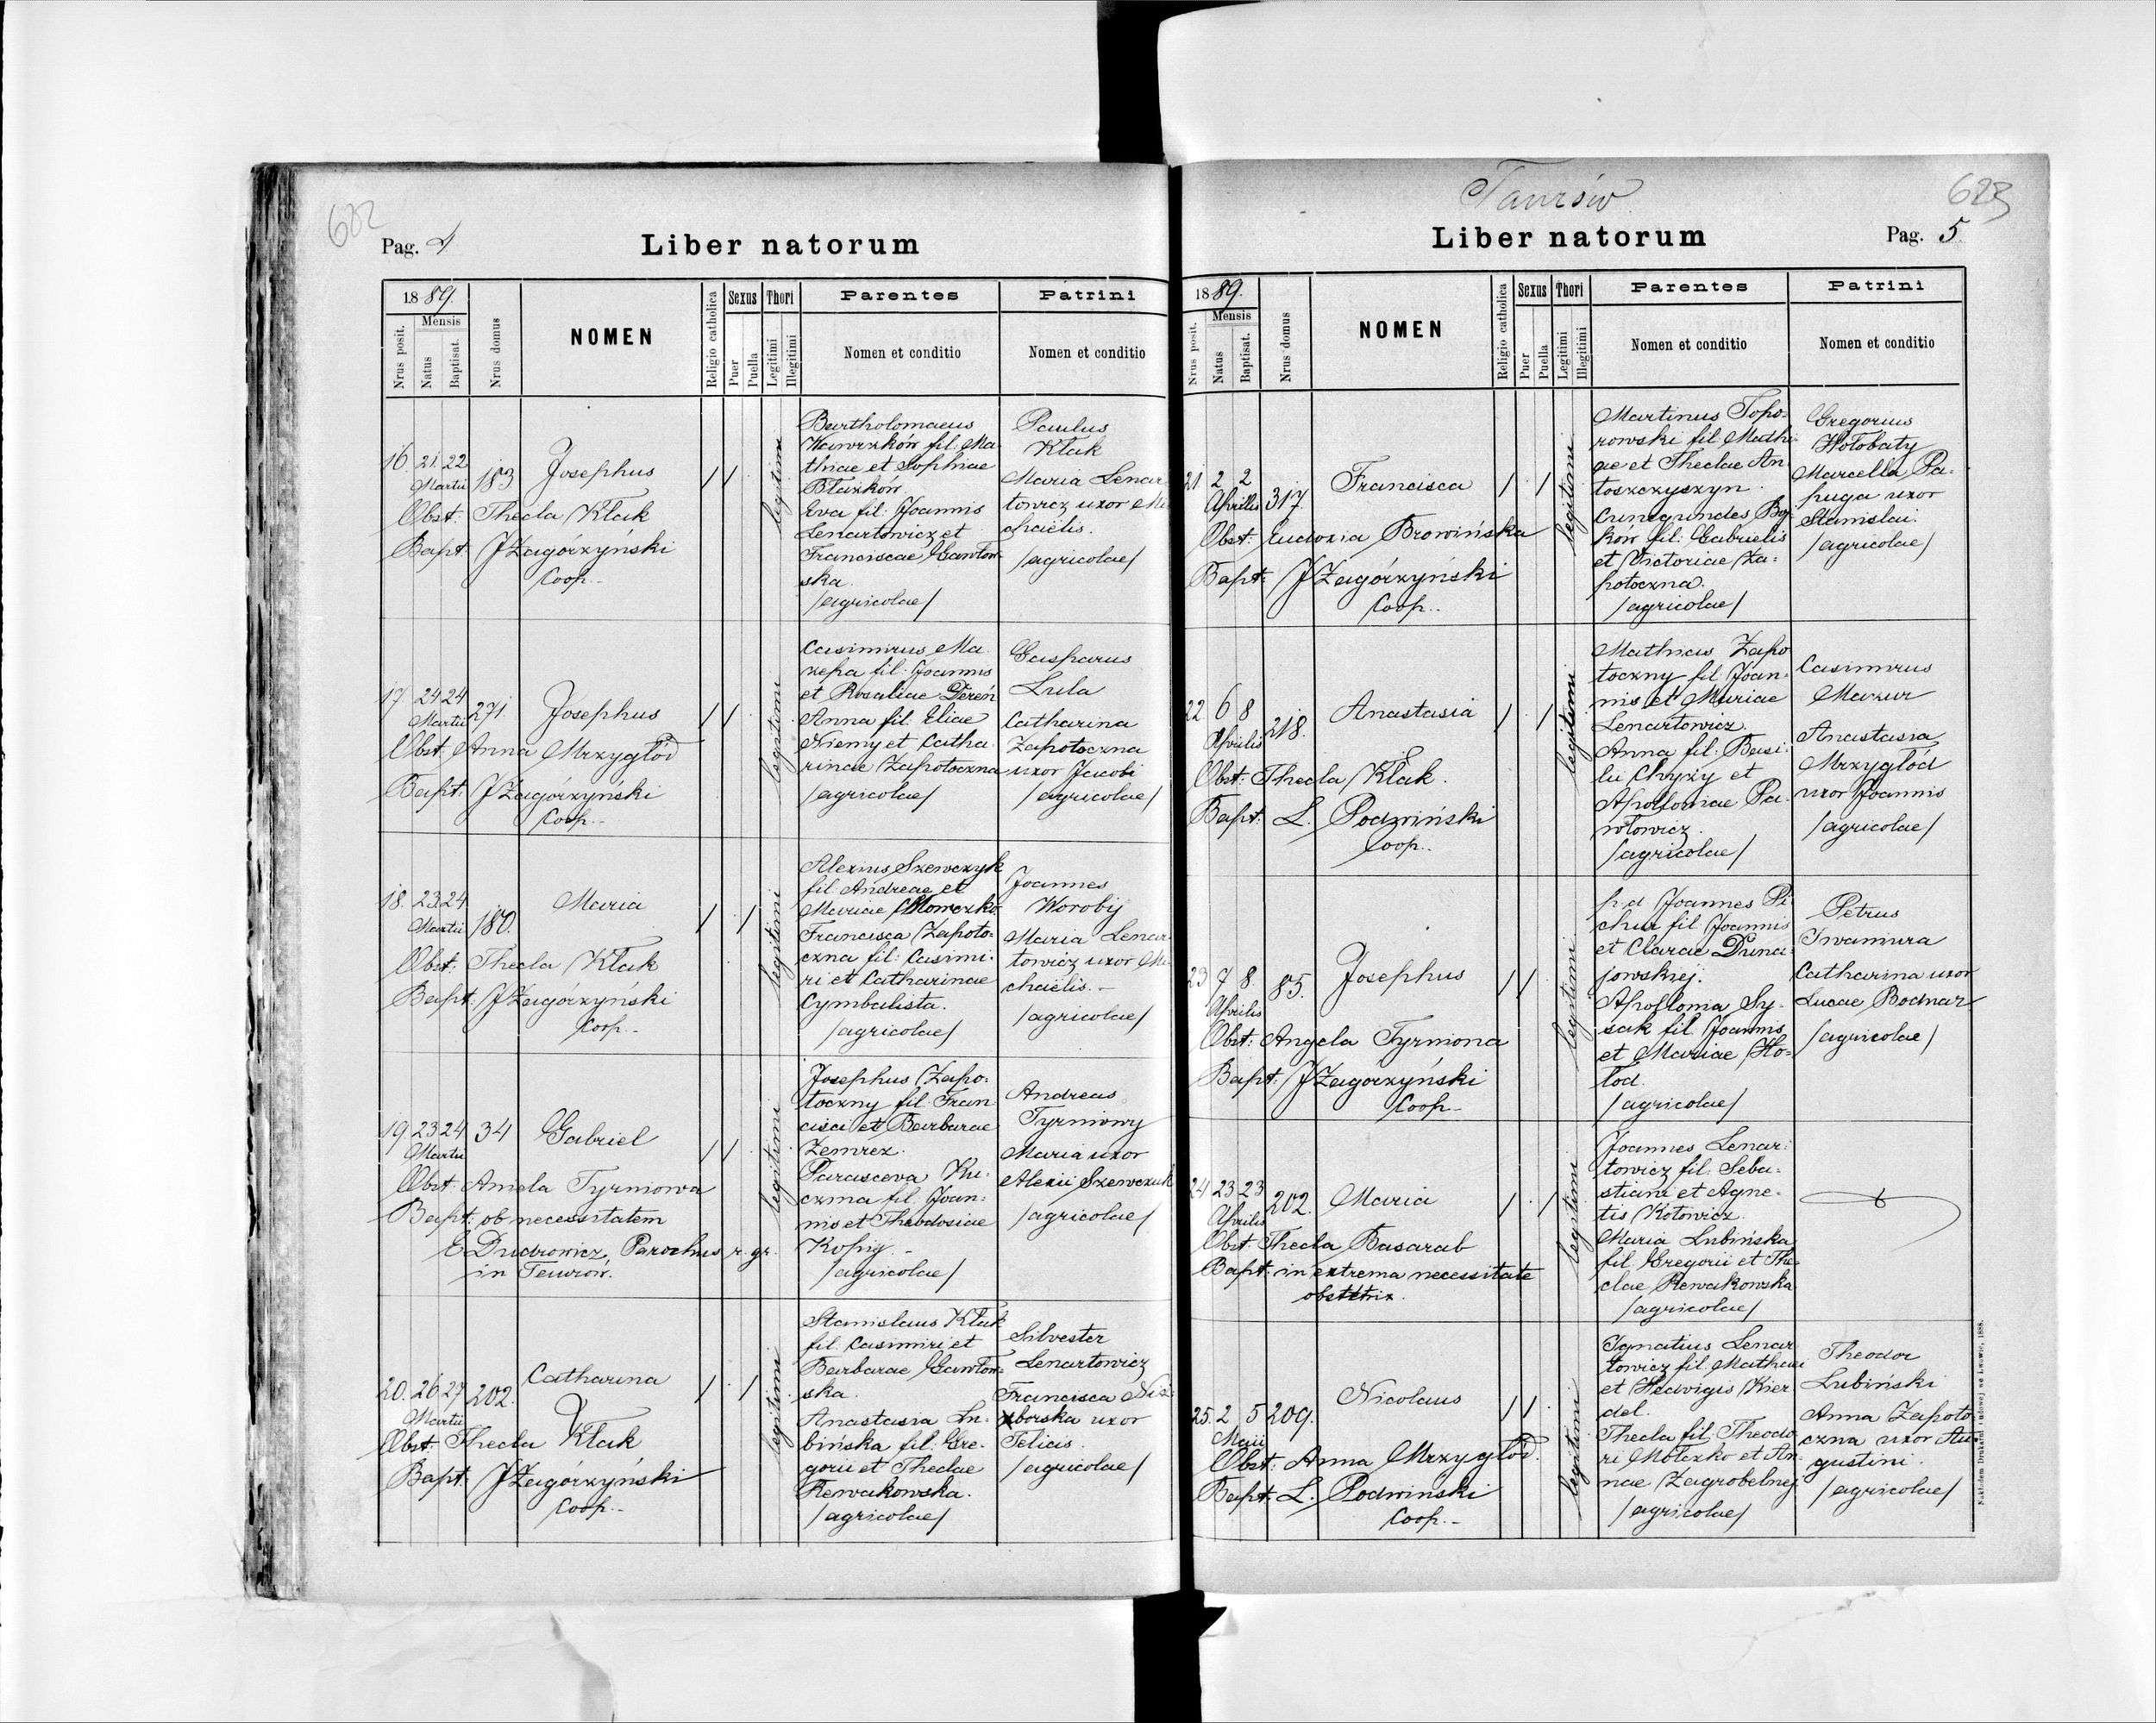 622
Pag. 4
Liber natorum
1889.
Mensis
Nrus posit.
Natus
Baptisat.
Nrus domus
NOMEN
Religio catholica
Sexus
Puer
Puella
Thori
Legitimi
Illegitimi
Parentes
Nomen et conditio
Patrini
Nomen et conditio
16. 21. 22
Martii
183
Josephus
/ /
legitimi
Obst: Thecla Kłak
Bapt: J Zagórzyński
Coop.-
Bartholomaeus
Wawrzków fil: Ma
thiae et Sophiae
Błazków.
Eva fil: Joannis
Lenartowicz et
Franciscae Gawłow-
ska.
/agricolae/
Paulus
Kłak
Maria Lenar
towicz uxor Mi
chaëlis.
/agricolae/
17 24 24
Martii
271.
Josephus
/ /
legitimi
Obst. Anna Mrzygłód
Bapt: J Zagórzyński
Coop.-
Casimirus Ma
zepa fil: Joannis
et Rosaliae Dereń
Anna fil. Eliae
Niemy et Catha
rinae Zapotoczna
/agricolae/
Gasparus
Lula
Catharina
Zapotoczna
uxor Jacobi
/agricolae/
18. 23. 24
Martii
180.
Maria
/ /
legitimi
Obst: Thecla Kłak
Bapt: J Zagórzyński
Coop.-
Alexius Szewczyk
fil. Andreae et
Mariae
Francisca Zapoto-
czna fil: Casimi-
ri et Catharinae
Cymbalista.
/agricolae/
Joannes
Worobij
Maria Lenar
towicz uxor Mi
chaëlis.-
/agricolae/
19. 23 24
Martii
34
Gabriel
/ /
legitimi
Obst: Amela Tyrniowa
Bapt: ob necessitatem
E Dudrowicz Parochus r. gr.
in Taurów.
Josephus Zapo-
toczny fil. Fran
cisci et Barbarae
Zemrez.
Parasceva Ku-
czma fil. Joan-
nis et Theodosiae
Kopij.-
/agricolae/
Andreas
Tyrniowy
Maria uxor
Alexii Szewczuk
/agricolae/
20. 26 27
Martii
202.
Catharina
/ /
legitimi
Obst: Thecla Kłak
Bapt: J Zagórzyński
Coop.-
Stanislaus Kłak
fil. Casimiri et
Barbarae Gawłow-
ska.
Anastasia Lu-
bińska fil: Gre-
gorii et Theclae
Rewakowska.
/agricolae/
Silvester
Lenartowicz
Francisca Niż
borska uxor
Felicis.
/agricolae/
Taurów
623
Liber natorum
Pag. 5.
1889.
Mensis
Nrus posit.
Natus
Baptisat.
Nrus domus
NOMEN
Religio catholica
Sexus
Puer
Puella
Thori
Legitimi
Illegitimi
Parentes
Nomen et conditio
Patrini
Nomen et conditio
21 2 2
Aprilis
317.
Francisca
/ /
legitimi
Obst: Eudoxia Browińska
Bapt: J Zagórzyński
Coop..
Martinus Topo-
rowski fil. Mathi
ae et Theclae An
toszczyszyn.
Cunegundes Boj
ków fil: Gabrielis
et Victoriae Za-
potoczna.
/agricolae/
Gregorius
Hołobaty
Marcella Pa-
puga uxor
Stanislai.
/agricolae/
22. 6 8
Aprilis
218.
Anastasia
/ /
legitimi
Obst: Thecla Kłak.
Bapt: L. Podwiński
Coop..
Mathias Zapo
toczny fil. Joan-
nis et Mariae
Lenartowicz
Anna fil: Basi-
lii Chyży et
Apolloniae Pa-
włowicz.
/agricolae/
Casimirus
Mazur
Anastasia
Mrzygłód
uxor Joannis
/agricolae/
23 7 8.
Aprilis
85.
Josephus
/ /
legitimi
Obst: Angela Tyrniona
Bapt: J Zagórzyński
Coop-
p.d Joannes Pi
chur fil: Joannis
et Clarae Duna-
jowskiej.
Apollonia Sy-
sak fil. Joannis
et Mariae Ho-
łod.
/agricolae/
Petrus
Iwaniura
Catharina uxor
Lucae Bodnar
/agricolae/
24 23 23
Aprilis
202.
Maria
/ /
legitimi
Obst. Thecla Basarab
Bapt. in extrema necessitate
obstetrix.
Joannes Lenar-
towicz fil: Seba-
stiani et Agne-
tis Kotowicz.
Maria Lubińska
fil. Gregorii et The
clae Rewakowska
/agricolae/
25. 2 5
Maii
209.
Nicolaus
/ /
legitimi
Obst: Anna Mrzygłód.
Bapt. L. Podwinski
Coop.-
Ignatius Lenar
towicz fil. Mathiae
et Hedvigis Kier
del.
Thecla fil. Theodo
ri Motezko et An
nae Zagrobelnej
/agricolae/
Theodor
Lubiński
Anna Zapoto
czna uxor Au-
gustini.
/agricolae/
Nakładem Drukarni ludowej we Lwowie, 1888.